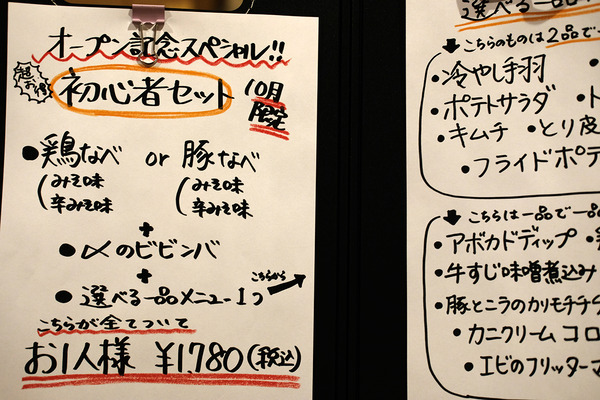 オープン記念スペシャル!!
超お得
初心者セット
10月
限定
●鶏なべ or 豚なべ
(みそ味 (みそ味
辛みそ味 辛みそ味
+
●〆のビビンバ
+
●選べる一品メニュー1つ
こちらから
こちらが全てついて
お1人様 ¥1,780(税込)
選べる一品
こちらのものは2品で一
●冷やし手羽
●ポテトサラダ
●キムチ ●とり皮
●フライドポテ
こちらは一品で一品
●アボカドディップ
●牛すじ味噌煮込み
●豚とニラのカリモチチ
●カニクリームコロ
●エビのフリッター